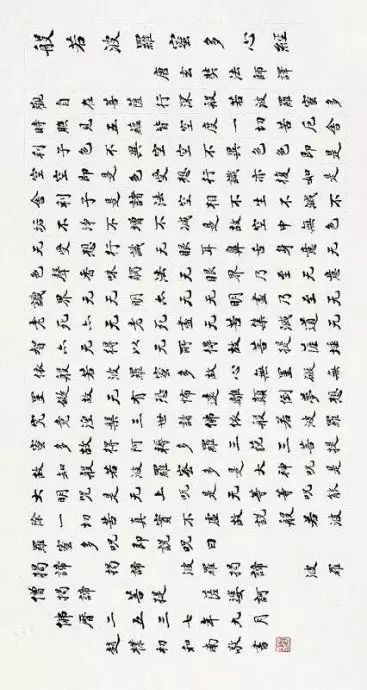 般若波羅蜜多心經
唐玄奘法師譯
觀自在菩薩行深般若波羅蜜多
時照見五蘊皆空度一切苦厄舍
利子色不異空空不異色色即是
空空即是色受想行識亦復如是
舍利子是諸法空相不生不滅不
垢不淨不增不減是故空中無色
无受想行識无眼耳鼻舌身意无
色聲香味觸法无眼界乃至无意
識界无无明亦无无明盡乃至无
老死亦无老死盡无苦集滅道无
智亦无得以无所得故菩提薩埵
依般若波羅蜜多故心無罣礙無
罣礙故无有恐怖遠離顛倒夢想
究竟涅槃三世諸佛依般若波羅
蜜多故得阿耨多羅三藐三菩提
故知般若波羅蜜多是大神咒是
大明咒是无上咒是无等等咒能
除一切苦真實不虛故說般若波
羅蜜多咒即說咒曰
揭諦揭諦 波羅揭諦 波羅
僧揭諦 菩提薩婆訶
佛曆二五三七年九月
趙樸初和南敬書